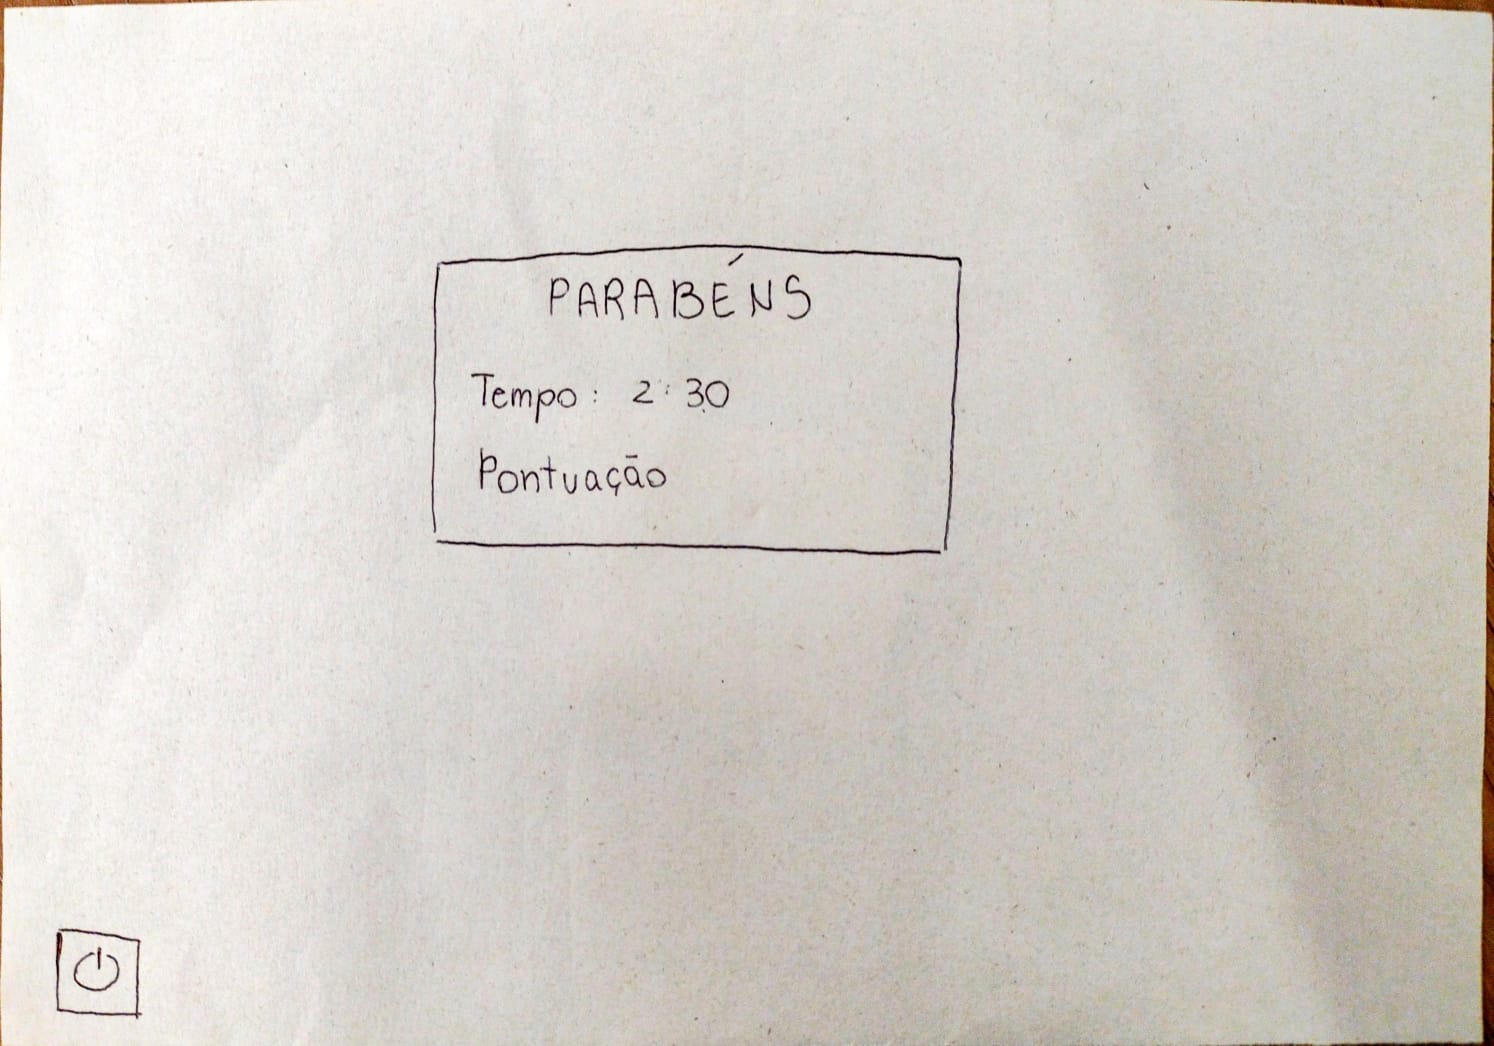 PARABÉNS
Tempo: 2:30
Pontuação